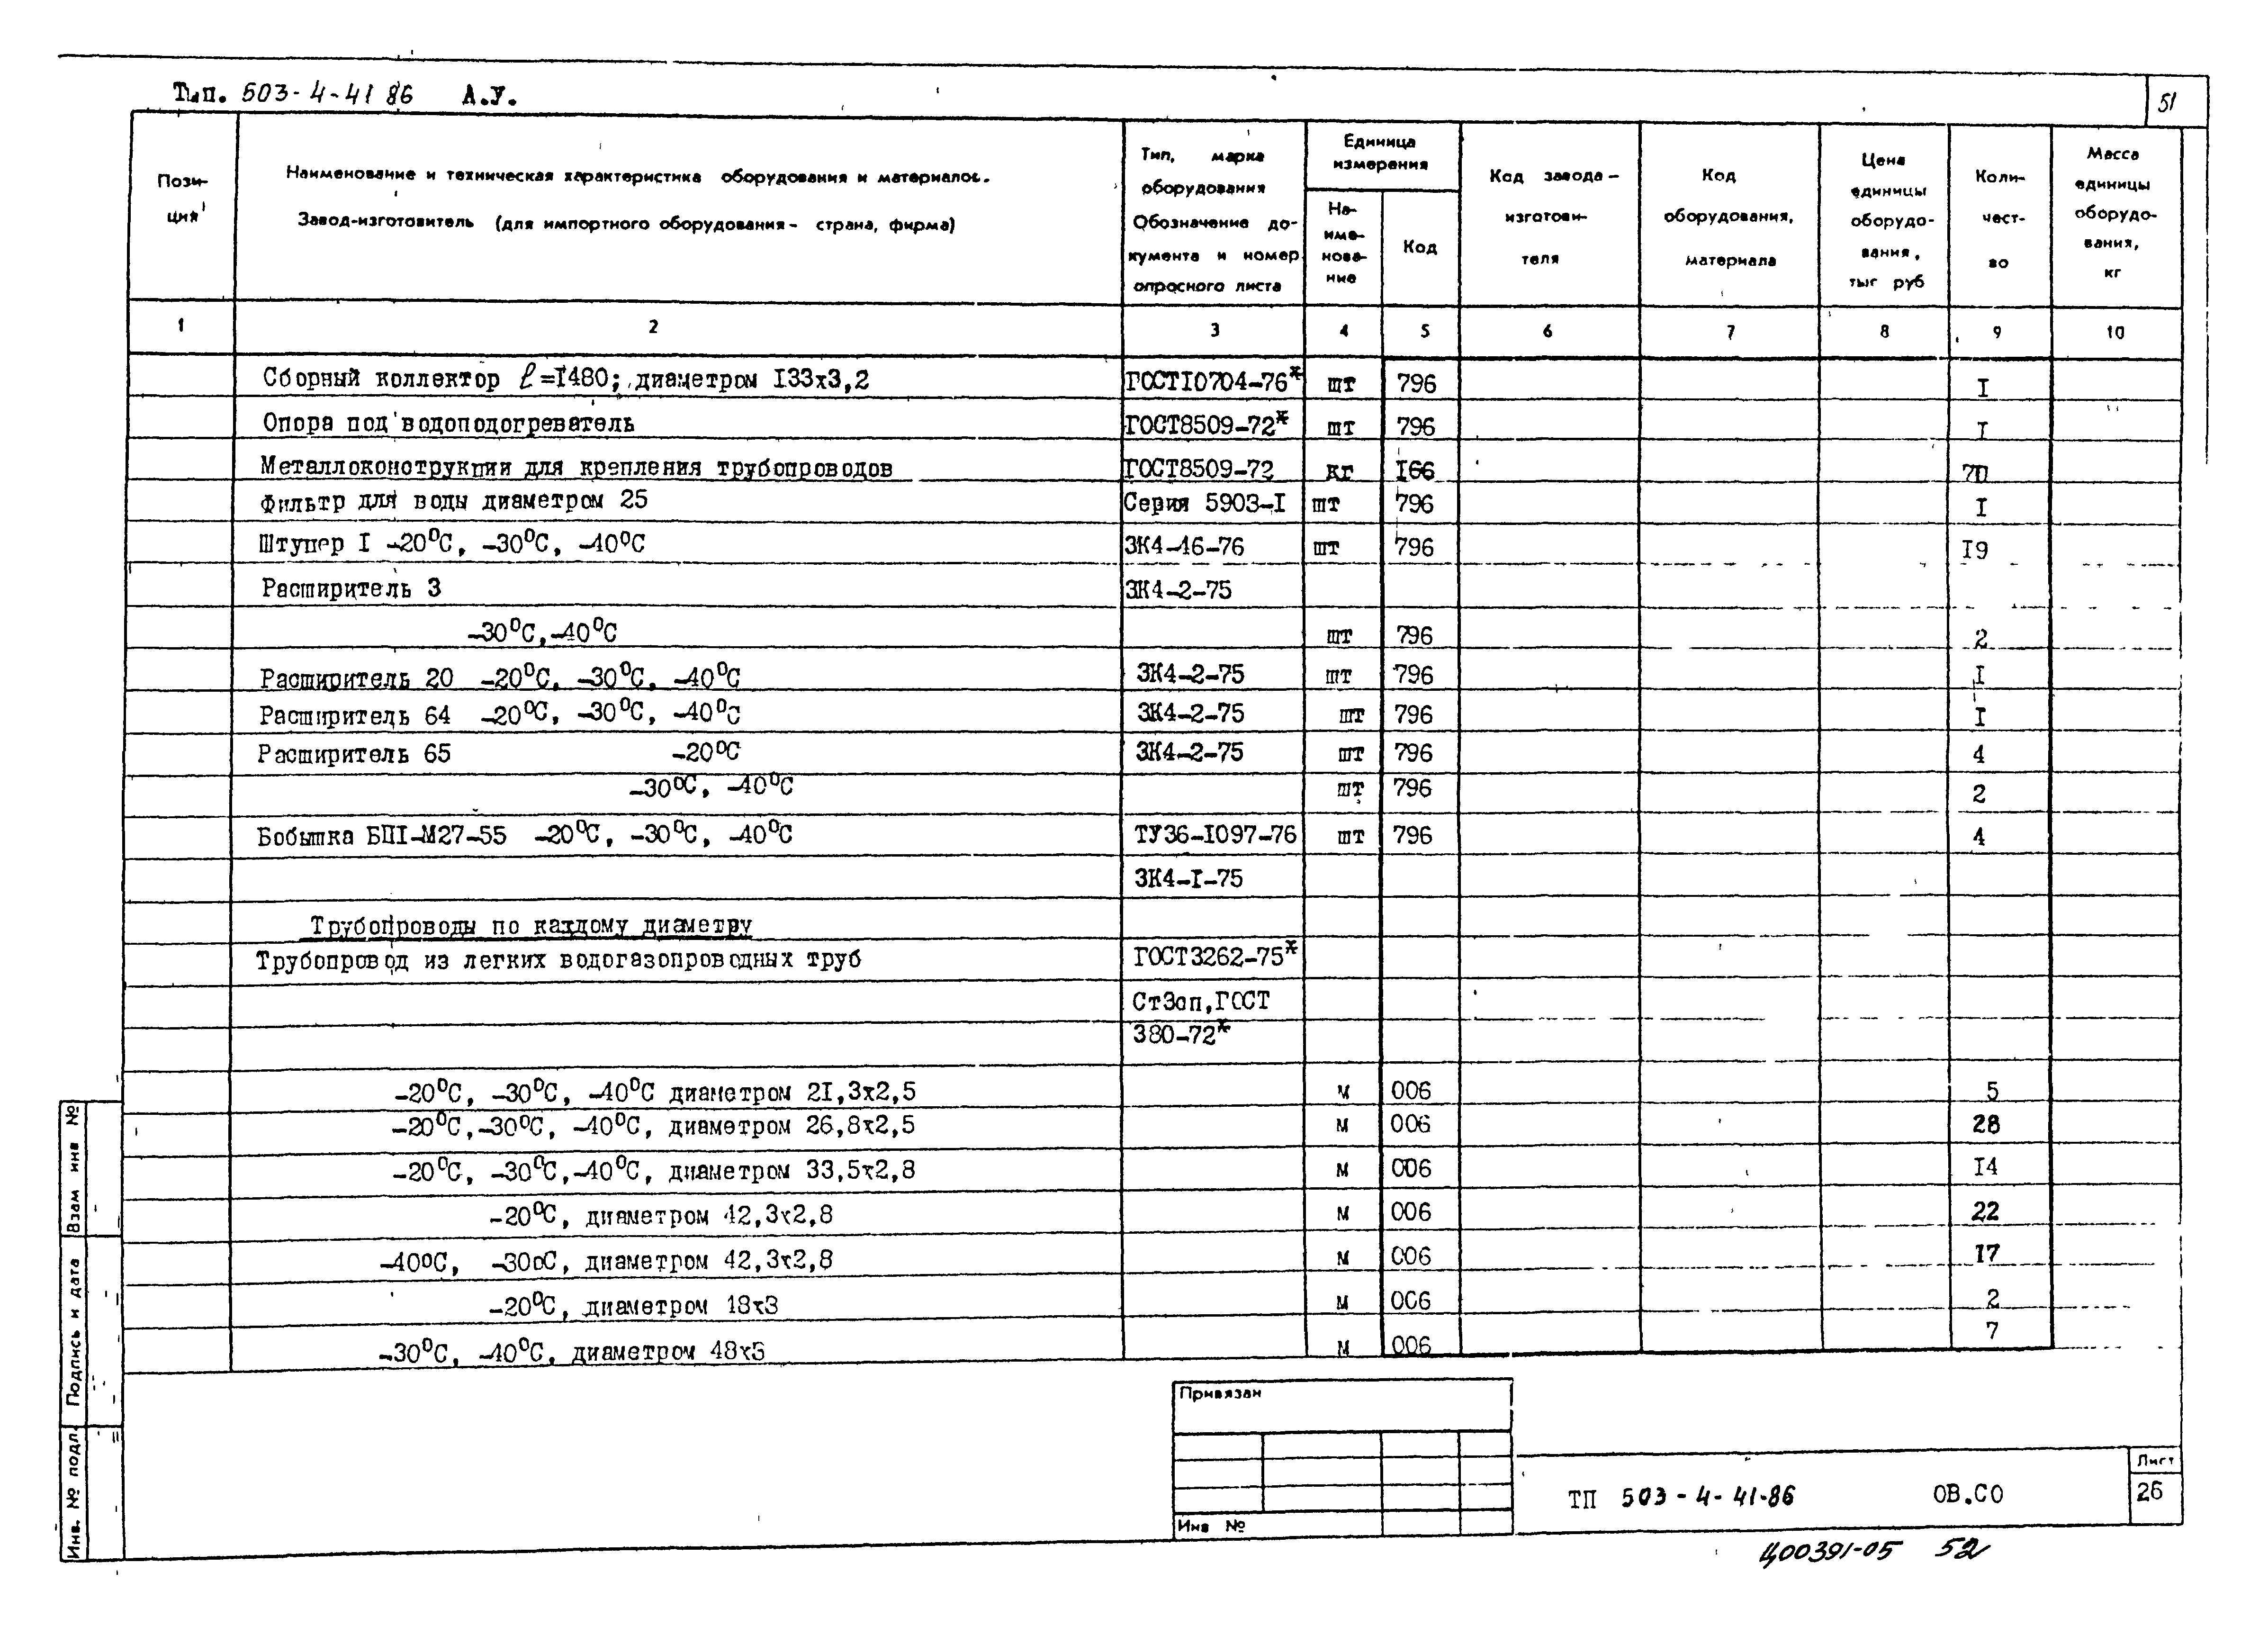 Тип. 503-4-41 86 А.У.
51
Пози-
ция
Наименование и техническая характеристика оборудования и материалов.
Завод-изготовитель (для импортного оборудования - страна, фирма)
Тип, марка
оборудования
Обозначение до-
кумента и номер
опросного листа
Единица
измерения
На-
име-
нова-
ние
Код
Код завода -
изготови-
теля
Код
оборудования,
материала
Цена
единицы
оборудо-
вания,
тыс руб
Коли-
чест-
во
Масса
единицы
оборудо-
вания,
кг
1 2 3 4 5 6 7 8 9 10
Сборный коллектор ℓ=I480; диаметром I33х3,2 ГОСТI0704-76* шт 796 I
Опора под водоподогреватель ГОСТ8509-72* шт 796 I
Металлоконструкции для крепления трубопроводов ГОСТ8509-72 кг I66 70
Фильтр для воды диаметром 25 Серия 5903-I шт 796 I
Штуцер I -20⁰С, -30⁰С, -40⁰С ЗК4-46-76 шт 796 I9
Расширитель 3 ЗК4-2-75
-30⁰С,-40⁰С шт 796 2
Расширитель 20 -20⁰С, -30⁰С, -40⁰С ЗК4-2-75 шт 796 I
Расширитель 64 -20⁰С, -30⁰С, -40⁰С ЗК4-2-75 шт 796 I
Расширитель 65 -20⁰С ЗК4-2-75 шт 796 4
-30⁰С, -40⁰С шт 796 2
Бобышка БПI-М27-55 -20⁰С, -30⁰С, -40⁰С ТУ36-I097-76 шт 796 4
ЗК4-I-75
Трубопроводы по каждому диаметру
Трубопровод из легких водогазопроводных труб ГОСТ3262-75*
Ст3сп,ГОСТ
380-72*
-20⁰С, -30⁰С, -40⁰С диаметром 2I,3х2,5 м 006 5
-20⁰С,-30⁰С, -40⁰С, диаметром 26,8х2,5 м 006 28
-20⁰С, -30⁰С,-40⁰С, диаметром 33,5х2,8 м 006 I4
-20⁰С, диаметром 42,3х2,8 м 006 22
-40оС, -30оС, диаметром 42,3х2,8 м 006 I7
-20⁰С, диаметром 18х3 м 006 2
-30⁰С, -40⁰С, диаметром 48х3 м 006 7
Взам инв №
Подпись и дата
Инв. № подл.
Привязан
Инв №
ТП 503-4-41.86 ОВ.СО
Лист
26
Ц00391-05 52